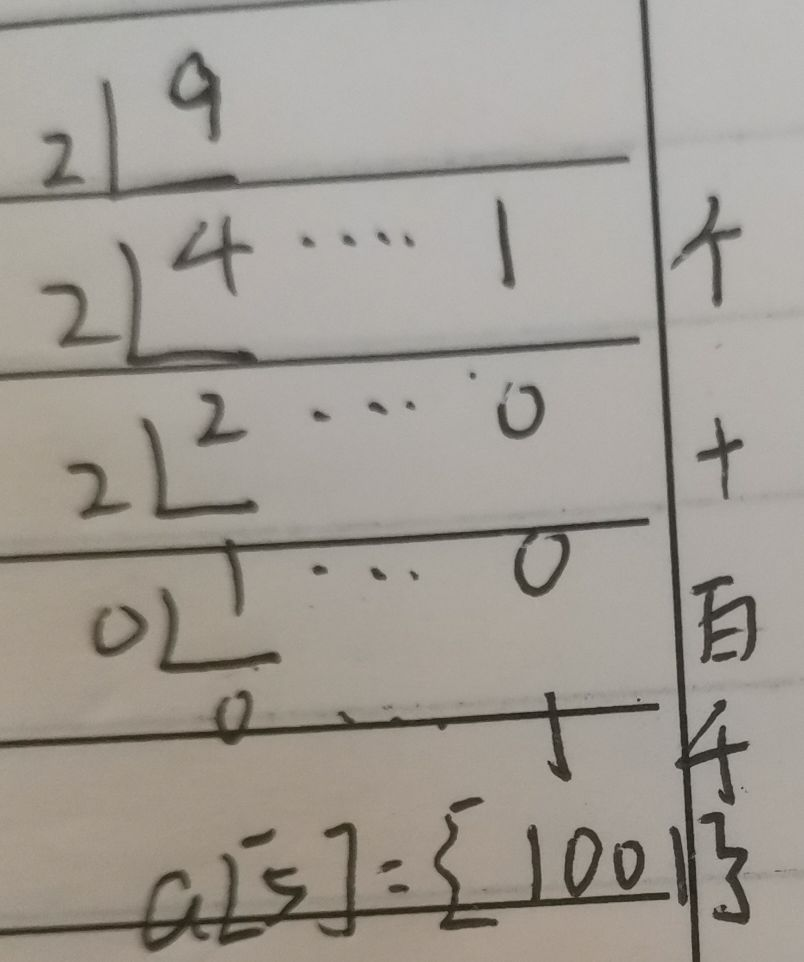 2 9
2 4 .... 1 个
2 2 ... 0 十
0 1 ... 0 百
0 .... 1 千
a[5]={1001}